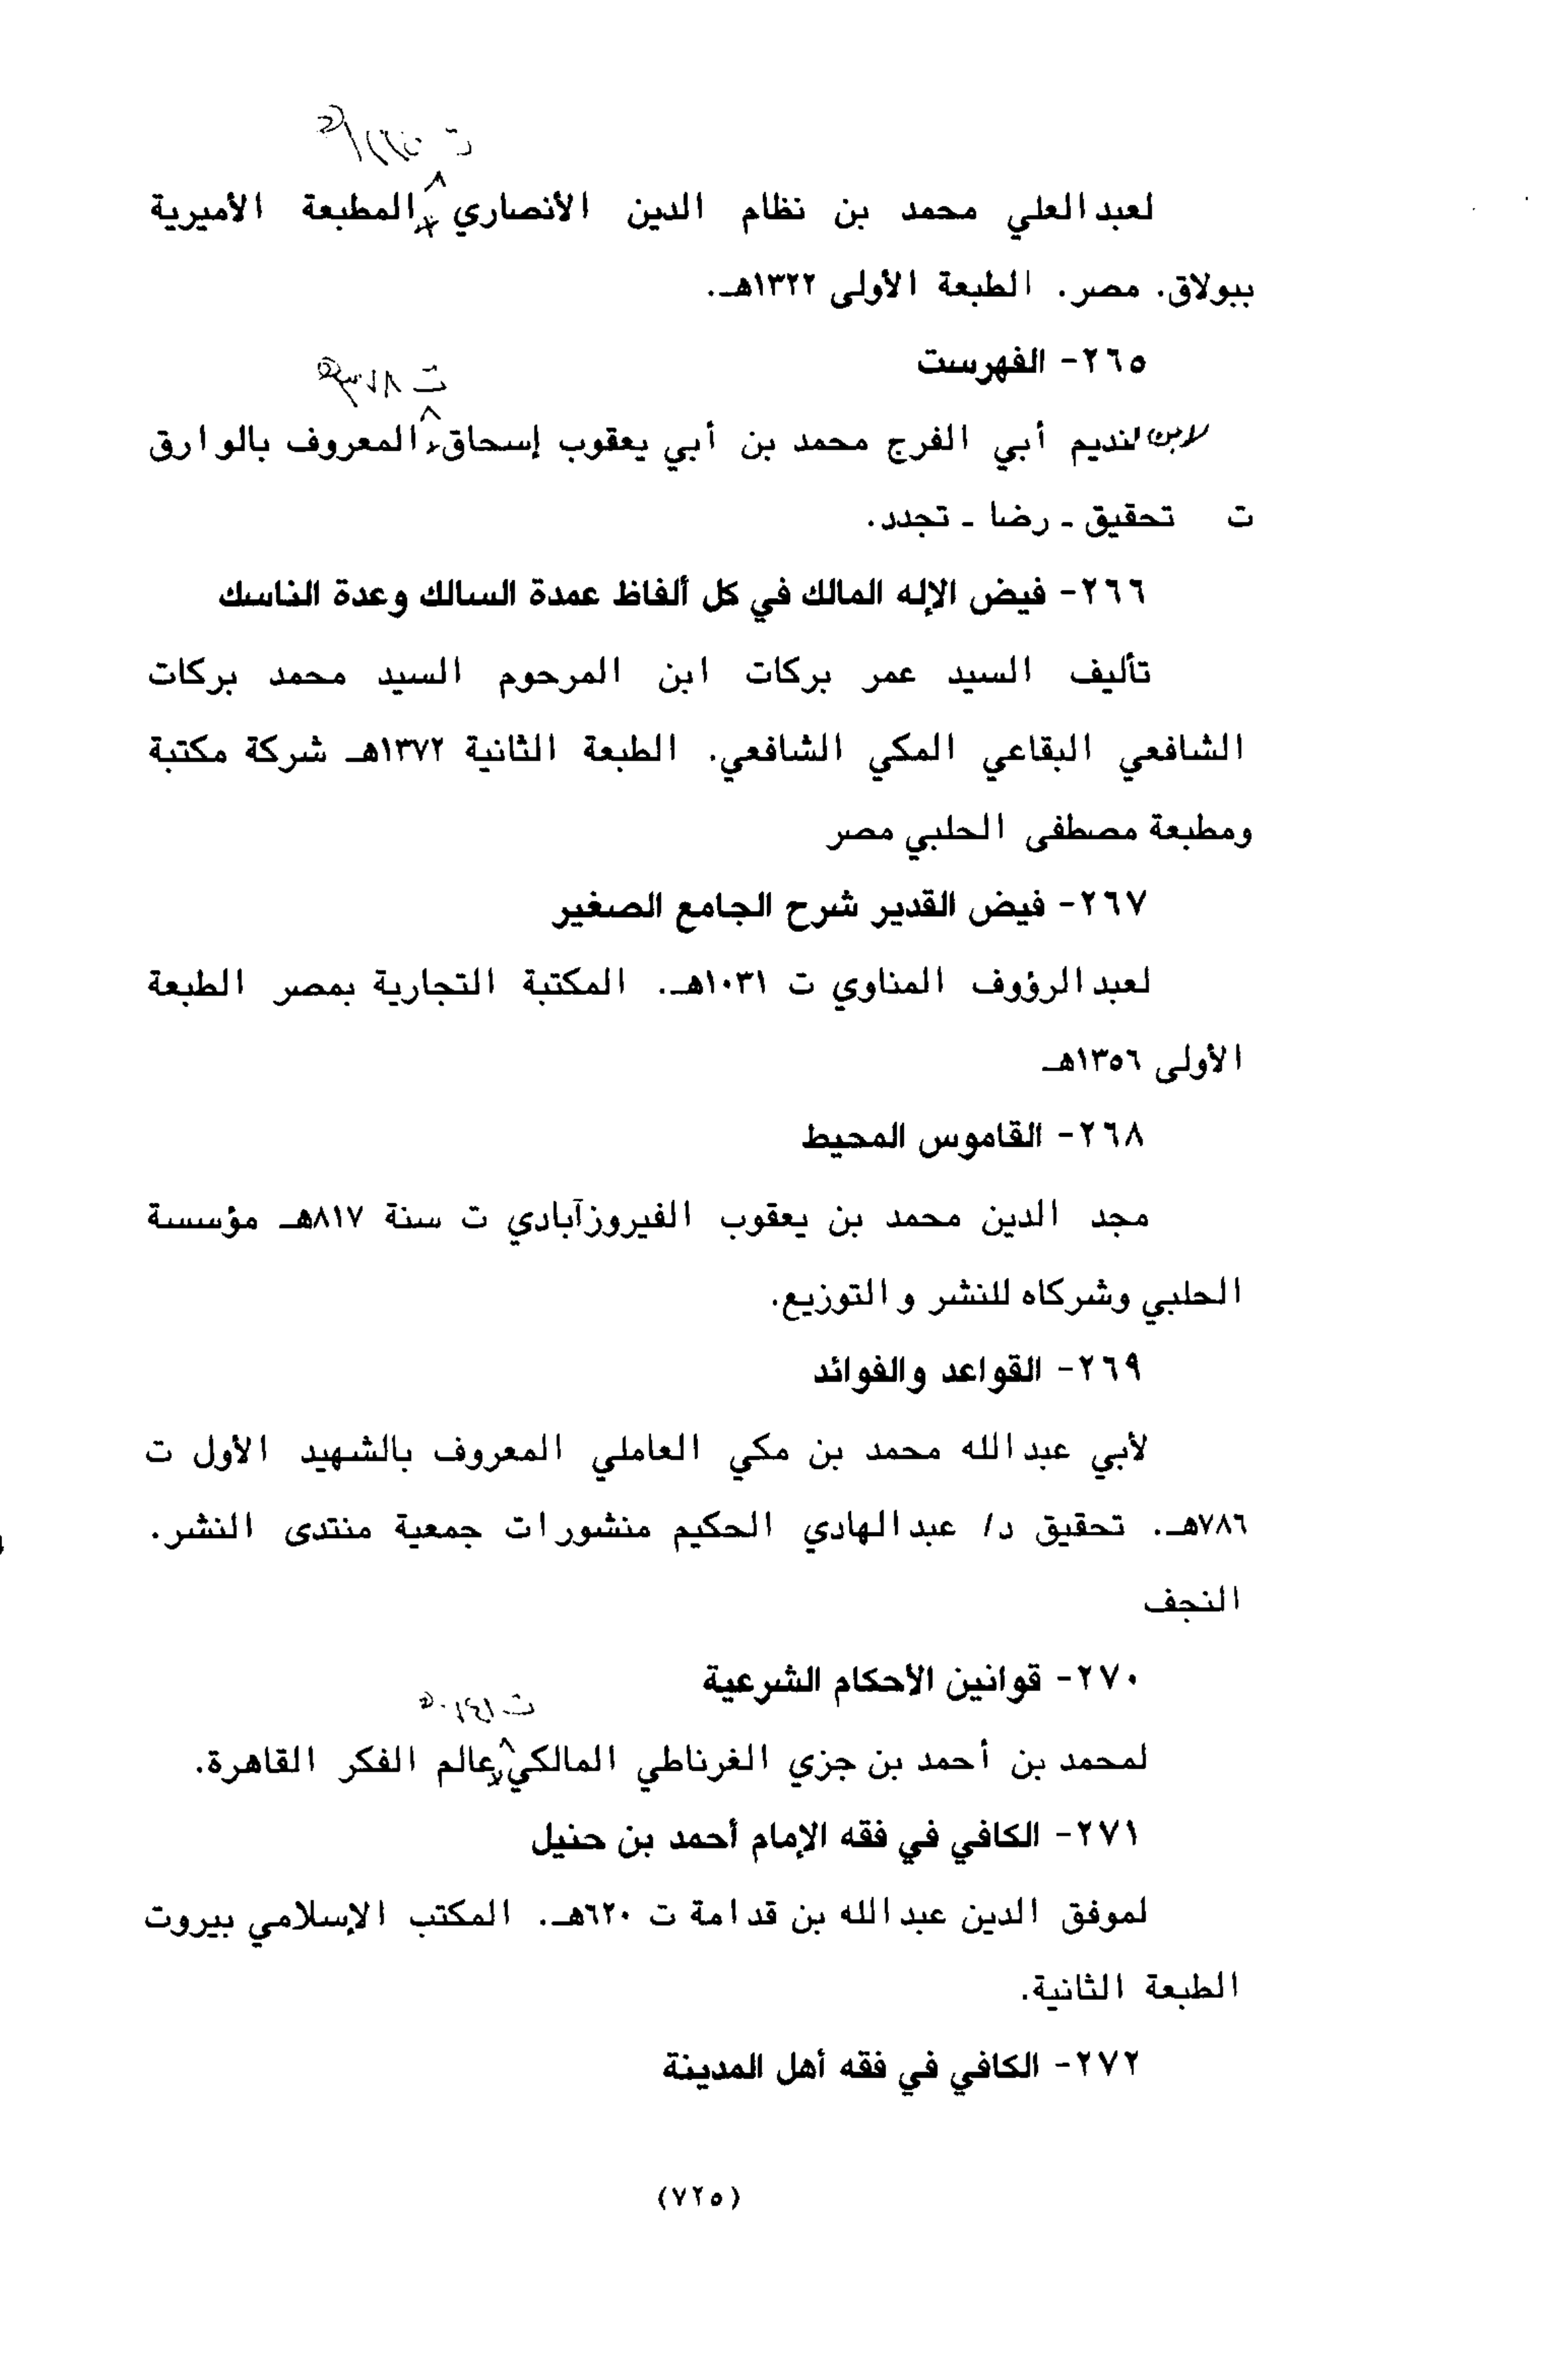 لعبدالعلي محمد بن نظام الدين الأنصاري المطبعة الأميرية
ببولاق. مصر. الطبعة الأولى ١٣٢٢هـ.
٢٦٥- الفهرست
لابن لنديم أبي الفرج محمد بن أبي يعقوب إسحاق المعروف بالوارق
ت تحقيق ـ رضا ـ تجدد.
٢٦٦- فيض الإله المالك في كل ألفاظ عمدة السالك وعدة الناسك
تأليف السيد عمر بركات ابن المرحوم السيد محمد بركات
الشافعي البقاعي المكي الشافعي. الطبعة الثانية ١٣٧٢هـ شركة مكتبة
ومطبعة مصطفى الحلبي مصر
٢٦٧- فيض القدير شرح الجامع الصغير
لعبدالرؤوف المناوي ت ١٠٣١هـ. المكتبة التجارية بمصر الطبعة
الأولى ١٣٥٦هـ
٢٦٨- القاموس المحيط
مجد الدين محمد بن يعقوب الفيروزآبادي ت سنة ٨١٧هـ مؤسسة
الحلبي وشركاه للنشر والتوزيع.
٢٦٩- القواعد والفوائد
لأبي عبدالله محمد بن مكي العاملي المعروف بالشهيد الأول ت
٧٨٦هـ. تحقيق د/ عبدالهادي الحكيم منشورات جمعية منتدى النشر.
النجف
٢٧٠- قوانين الأحكام الشرعية
لمحمد بن أحمد بن جزي الغرناطي المالكي عالم الفكر القاهرة.
٢٧١- الكافي في فقه الإمام أحمد بن حنيل
لموفق الدين عبدالله بن قدامة ت ٦٢٠هـ. المكتب الإسلامي بيروت
الطبعة الثانية.
٢٧٢- الكافي في فقه أهل المدينة
(٧٢٥)